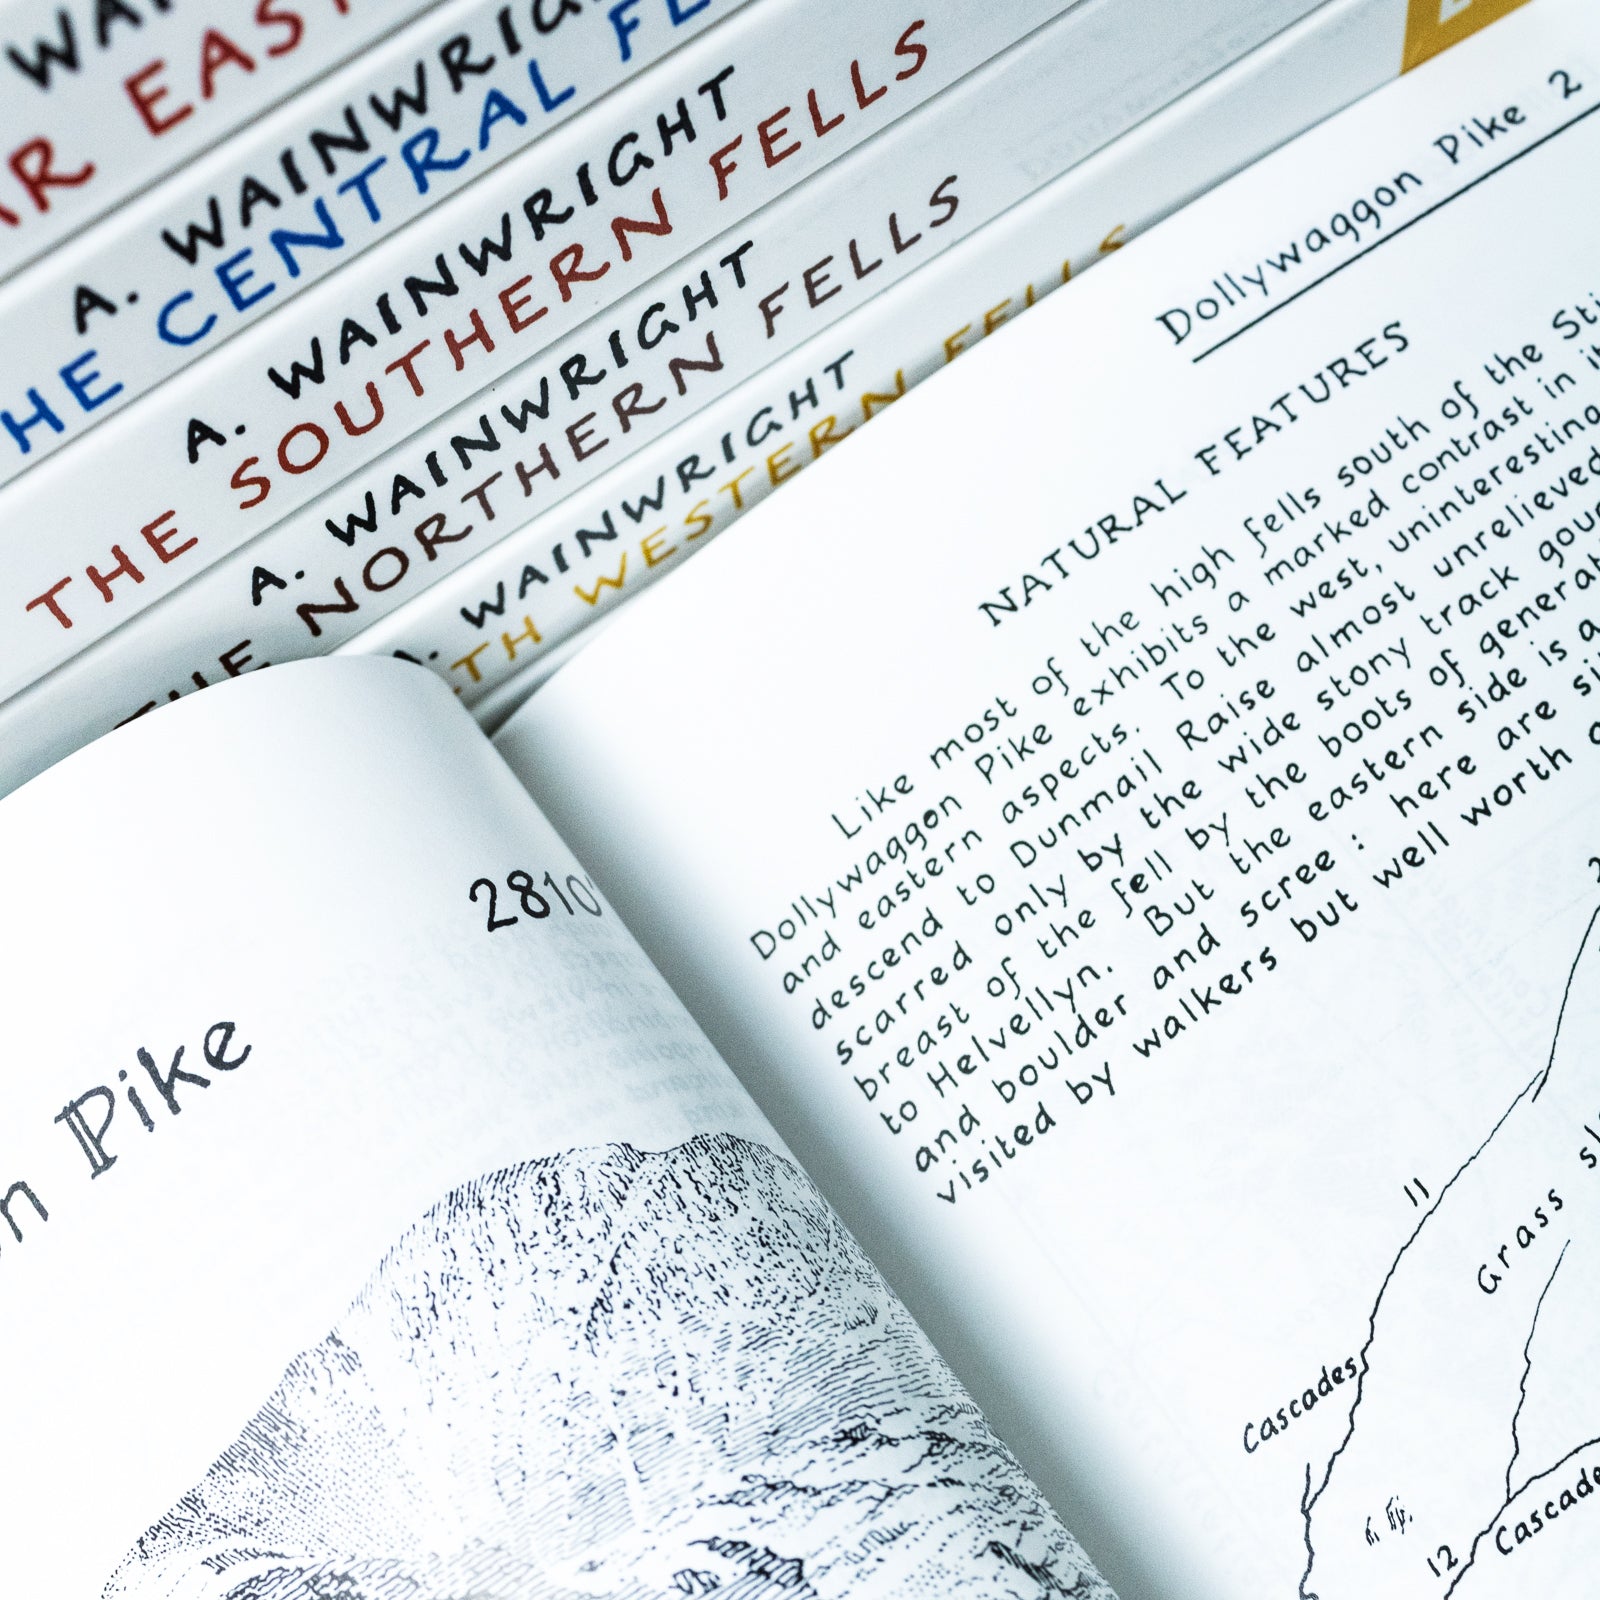 A. WAINWRIGHT
THE CENTRAL
A. WAINWRIGHT
THE SOUTHERN FELLS
A. WAINWRIGHT
THE NORTHERN FELLS
WAINWRIGHT
WESTERN FELLS
2810'
Pike
Dollywaggon Pike 2
NATURAL FEATURES
Like most of the high fells south of the
Dollywaggon Pike exhibits a marked contrast in
and eastern aspects. To the west,
descend to Dunmail Raise almost unrelieved
scarred only by the wide stony track
breast of the fell by the boots of
to Helvellyn. But the eastern side is a
and boulder and scree : here are
visited by walkers but well worth
11
Grass
Cascades
12